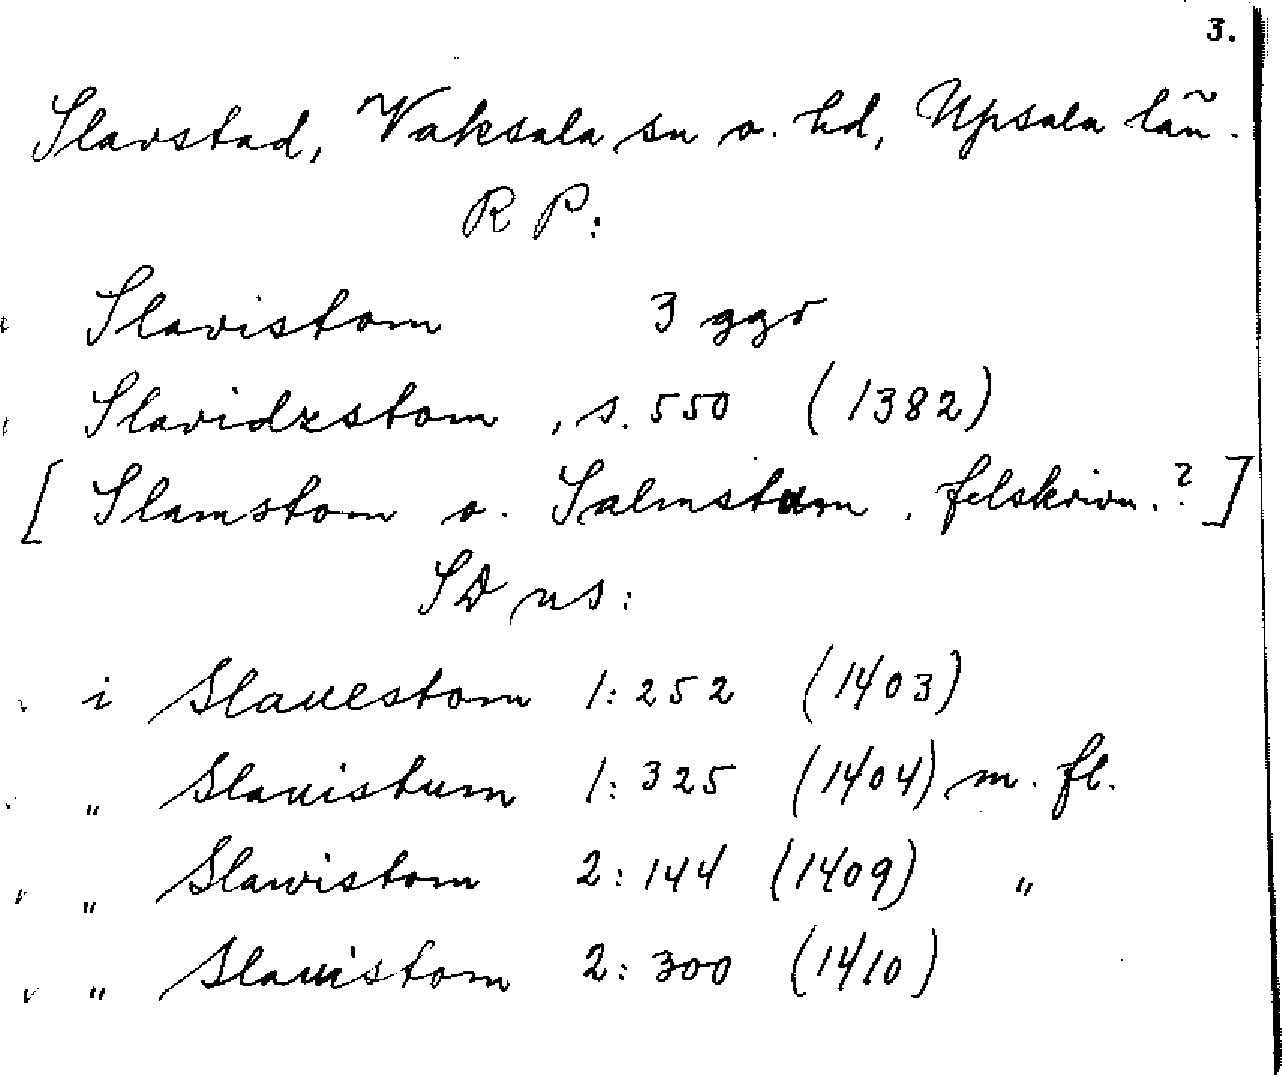 3.
Slavstad, Vaksala sn o. hd, Upsala län.
R P:
Slavistom 3 ggr
Slavidzstom , s. 550 (1382)
[ Slamstom o. Salmstum , felskrivn.? ]
SD ns:
i Slauestom 1:252 (1403)
„ Slauistum 1:325 (1404) m. fl.
„ Slawistom 2:144 (1409) „
„ Slauistom 2:300 (1410)